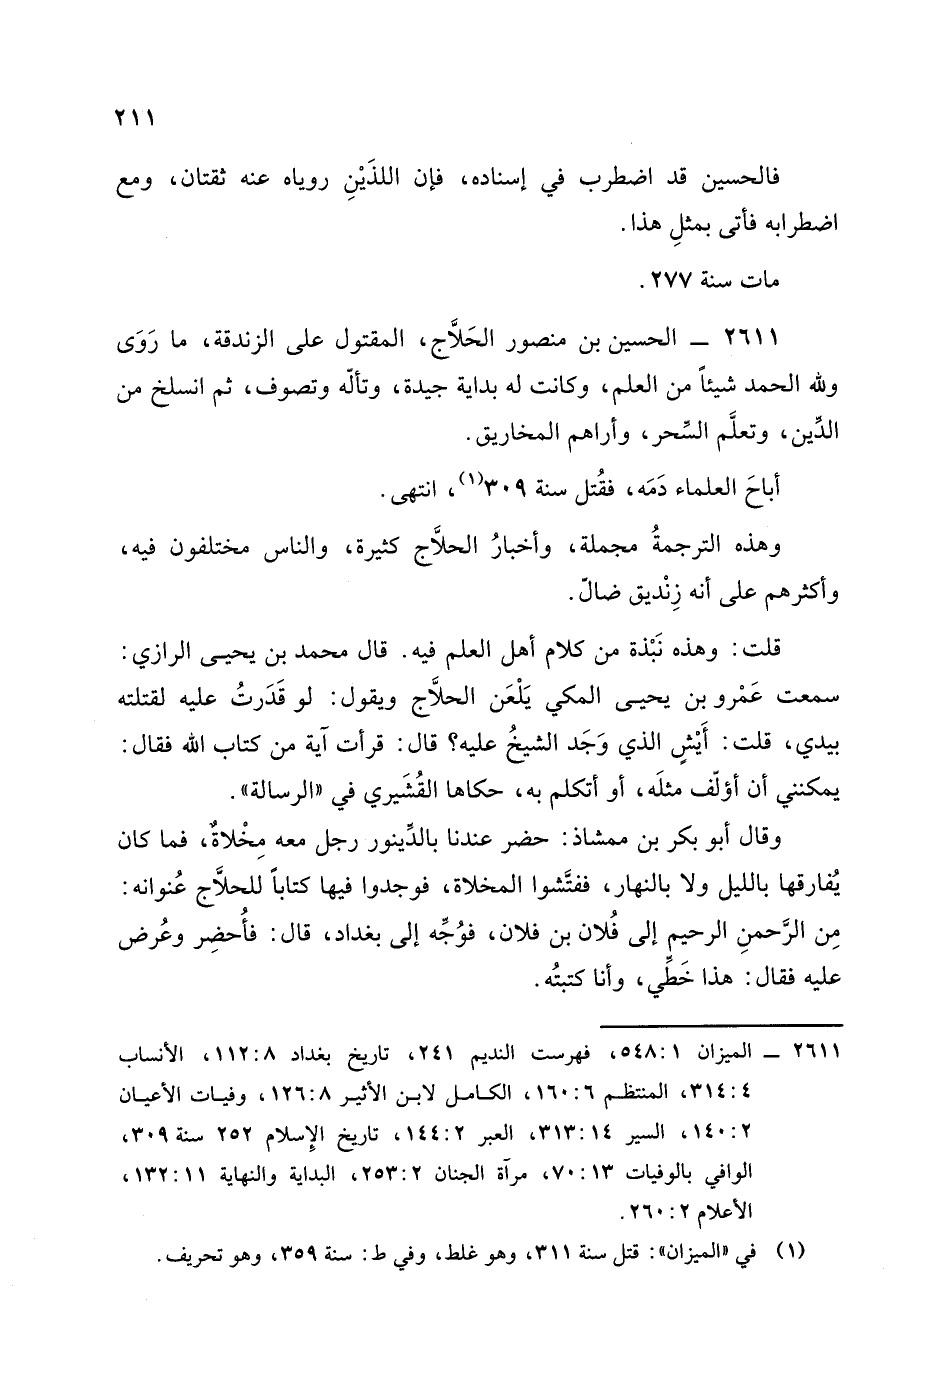 ٢١١
فالحسين قد اضطرب في إسناده، فإن اللذَيْنِ روياه عنه ثقتان، ومع
اضطرابه فأتى بمثلِ هذا.
مات سنة ٢٧٧.
٢٦١١ ــ الحسين بن منصور الحَلاَّج، المقتول على الزندقة، ما رَوَى
ولله الحمد شيئاً من العلم، وكانت له بداية جيدة، وتألّه وتصوف، ثم انسلخ من
الدِّين، وتعلَّم السِّحر، وأراهم المخاريق.
أباحَ العلماء دَمَه، فقُتل سنة ٣٠٩(١)، انتهى.
وهذه الترجمةُ مجملة، وأخبارُ الحلاَّج كثيرة، والناس مختلفون فيه،
وأكثرهم على أنه زِنْديق ضالّ.
قلت: وهذه نَبْذة من كلام أهل العلم فيه. قال محمد بن يحيـى الرازي:
سمعت عَمْرو بن يحيـى المكي يَلْعَن الحلاَّج ويقول: لو قَدَرتُ عليه لقتلته
بيدي، قلت: أَيْشٍ الذي وَجَد الشيخُ عليه؟ قال: قرأت آية من كتاب الله فقال:
يمكنني أن أؤلّف مثلَه، أو أتكلم به، حكاها القُشَيري في «الرسالة».
وقال أبو بكر بن ممشاذ: حضر عندنا بالدِّينور رجل معه مِخْلاةٌ، فما كان
يُفارقها بالليل ولا بالنهار، ففتَّشوا المخلاة، فوجدوا فيها كتاباً للحلاَّج عُنوانه:
مِن الرَّحمنِ الرحيم إلى فُلان بن فلان، فوُجِّه إلى بغداد، قال: فأُحضِر وعُرض
عليه فقال: هذا خَطِّي، وأنا كتبتُه.
٢٦١١ ــ الميزان ١:٥٤٨، فهرست النديم ٢٤١، تاريخ بغداد ٨:١١٢، الأنساب
٤:٣١٤، المنتظم ٦:١٦٠، الكامل لابن الأثير ٨:١٢٦، وفيات الأعيان
٢:١٤٠، السير ١٤:٣١٣، العبر ٢:١٤٤، تاريخ الإسلام ٢٥٢ سنة ٣٠٩،
الوافي بالوفيات ١٣:٧٠، مرآة الجنان ٢:٢٥٣، البداية والنهاية ١١:١٣٢،
الأعلام ٢:٢٦٠.
(١) في «الميزان»: قتل سنة ٣١١، وهو غلط، وفي ط: سنة ٣٥٩، وهو تحريف.